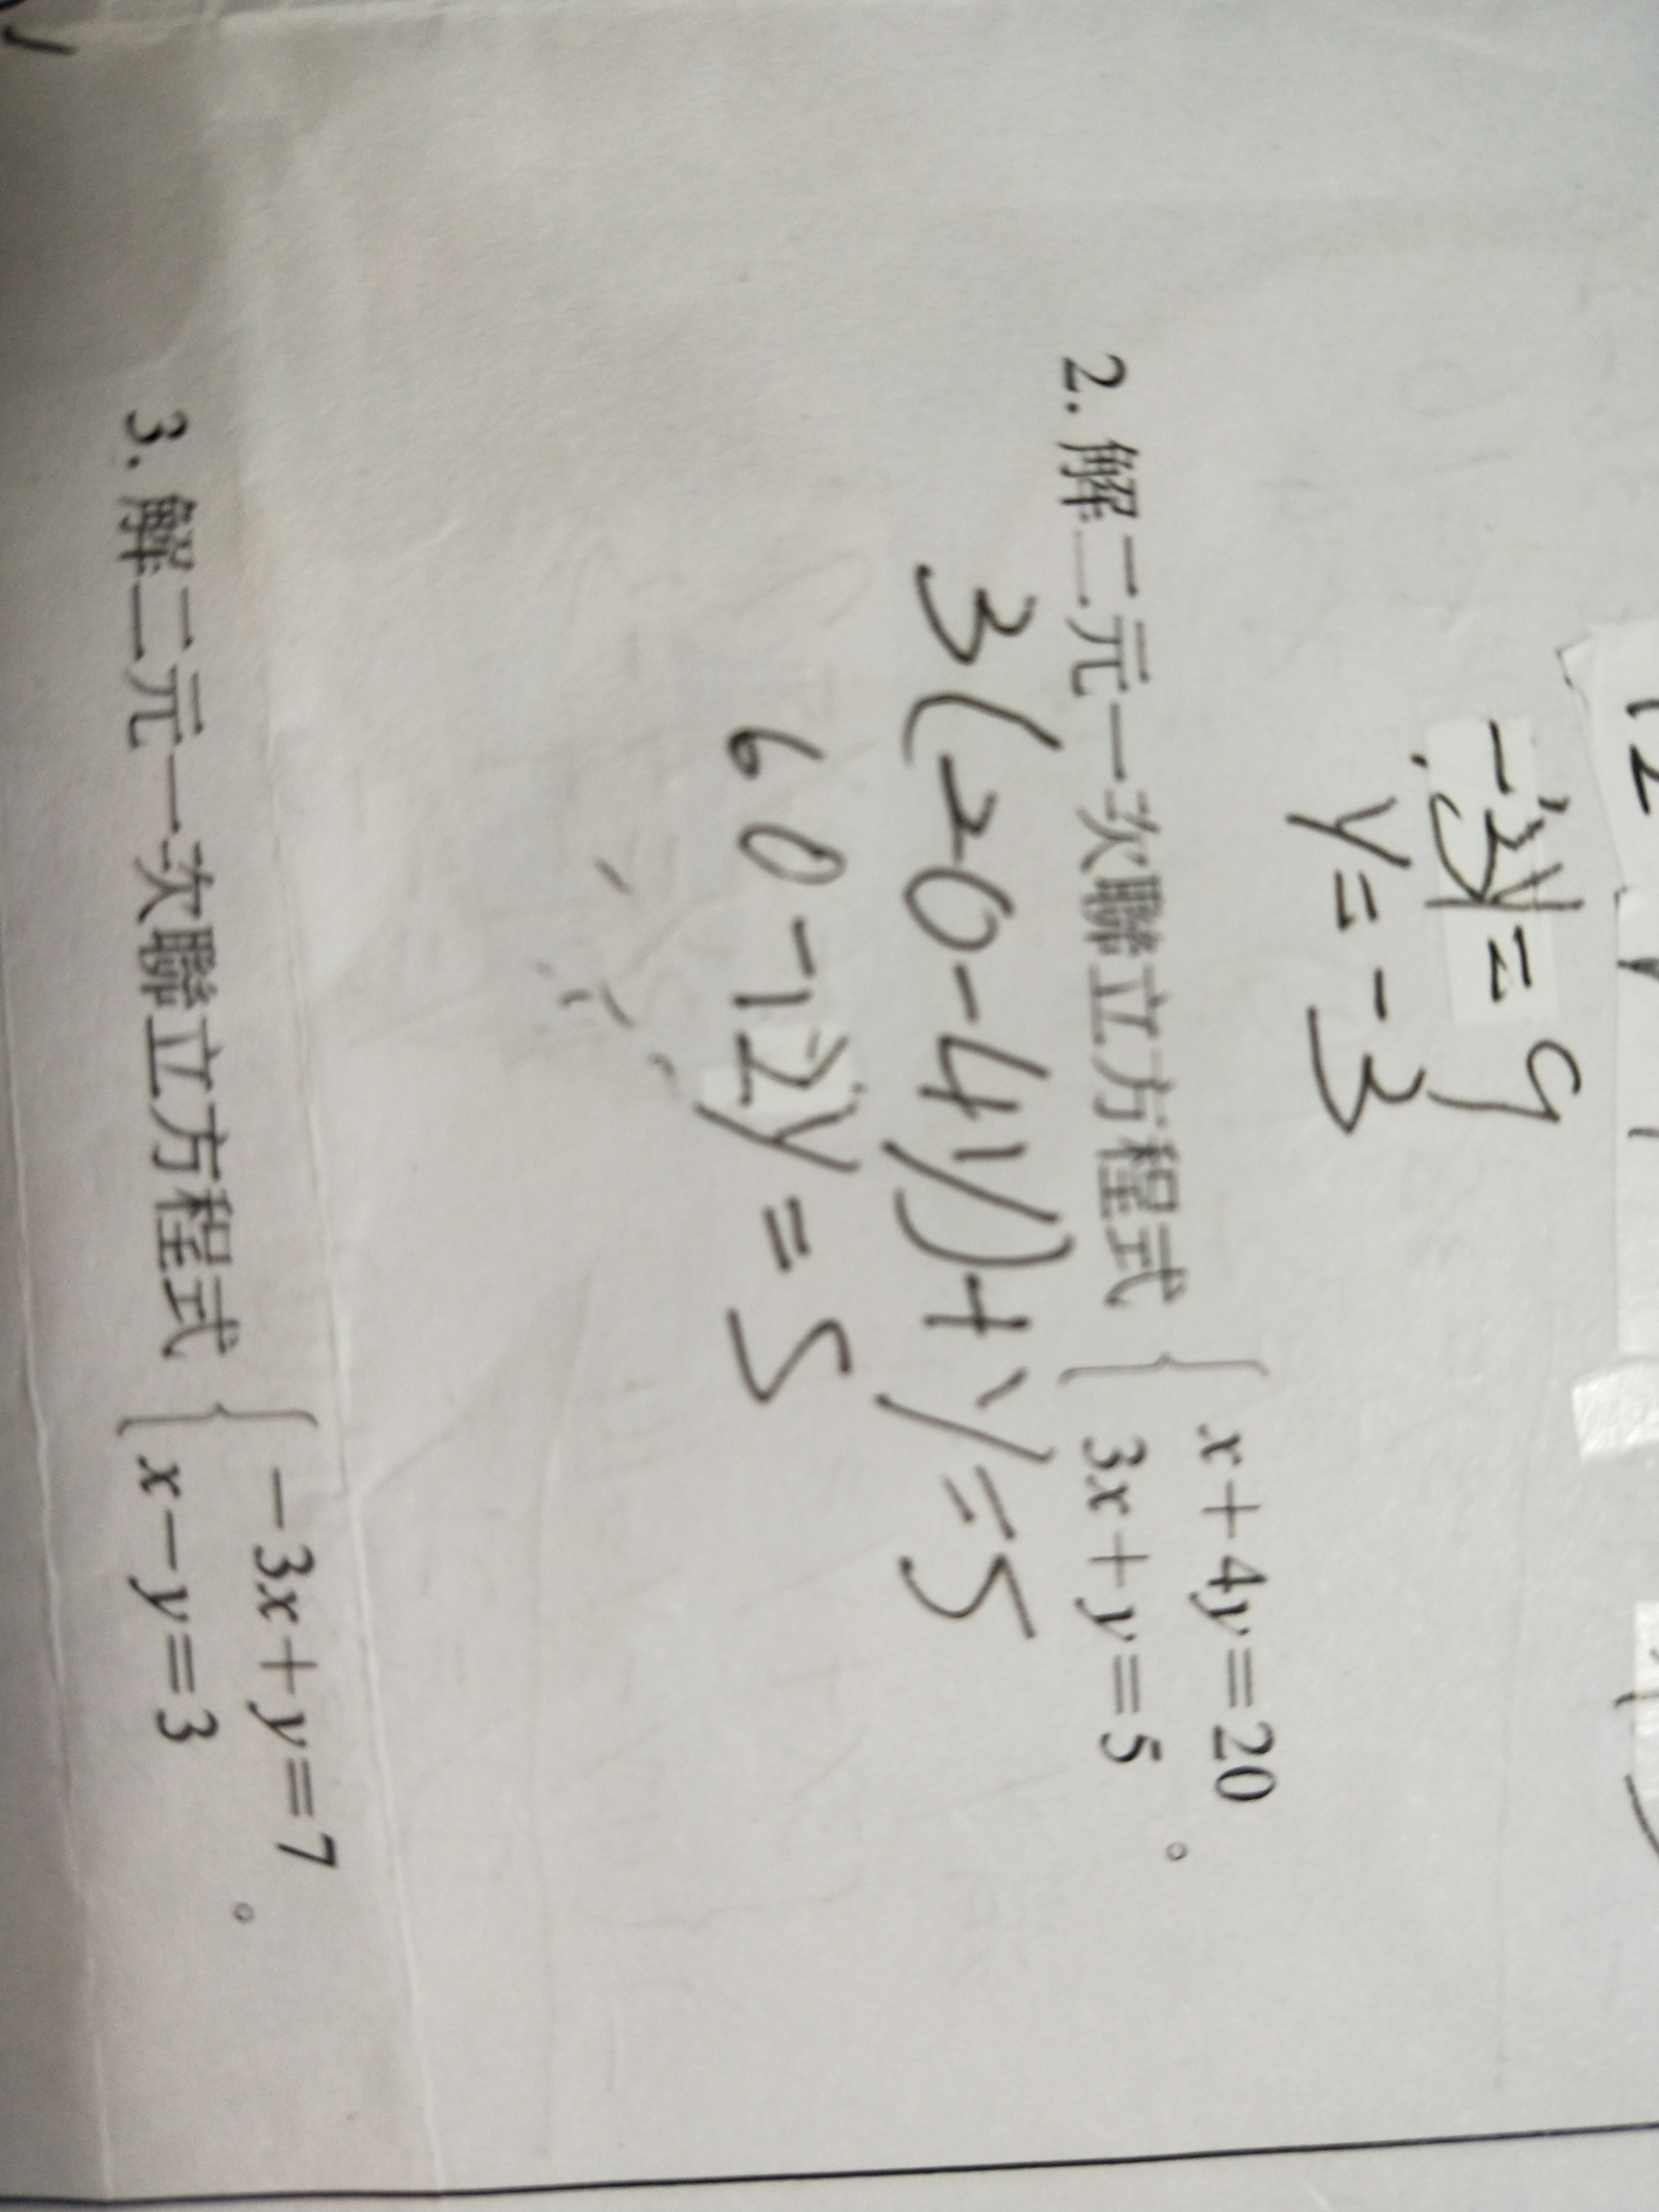 -3y = 9
y = -3
2. 解二元一次聯立方程式 { x+4y=20
3x+y=5 。
3(20-4y)+y=5
60-12y=5
3. 解二元一次聯立方程式 { -3x+y=7
x-y=3 。